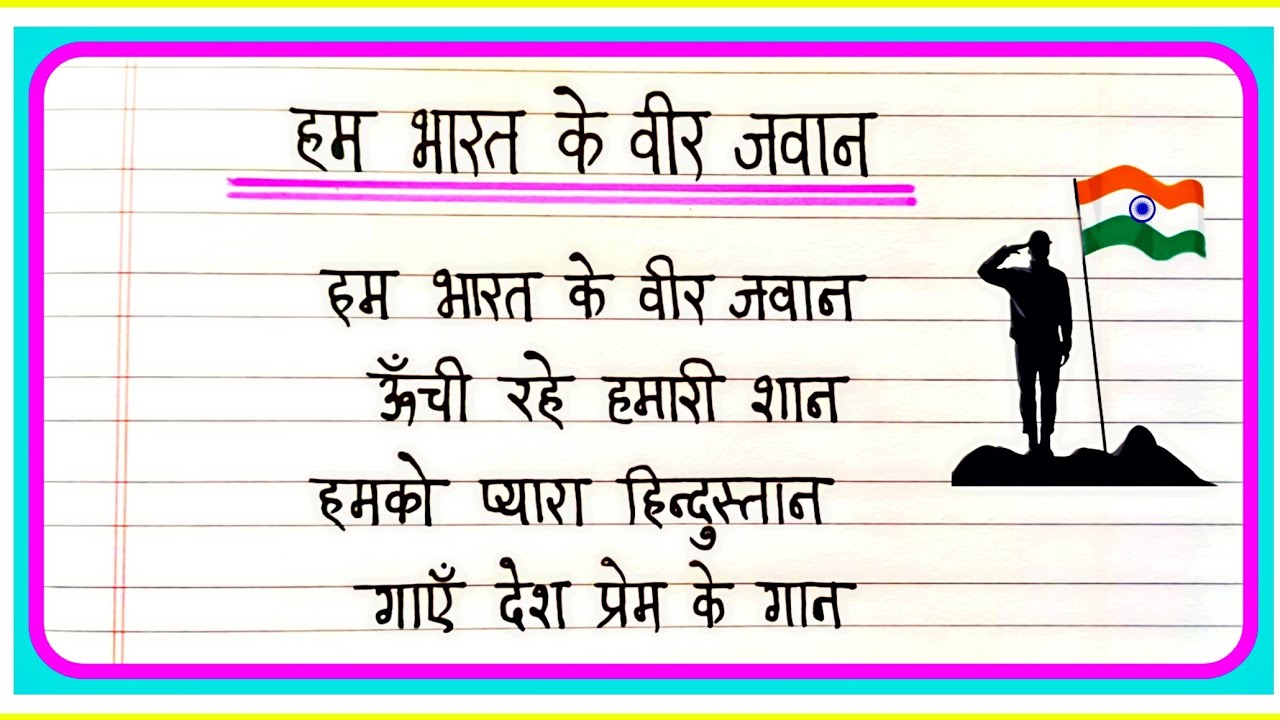 हम भारत के वीर जवान
हम भारत के वीर जवान
ऊँची रहे हमारी शान
हमको प्यारा हिन्दुस्तान
गाएँ देश प्रेम के गान